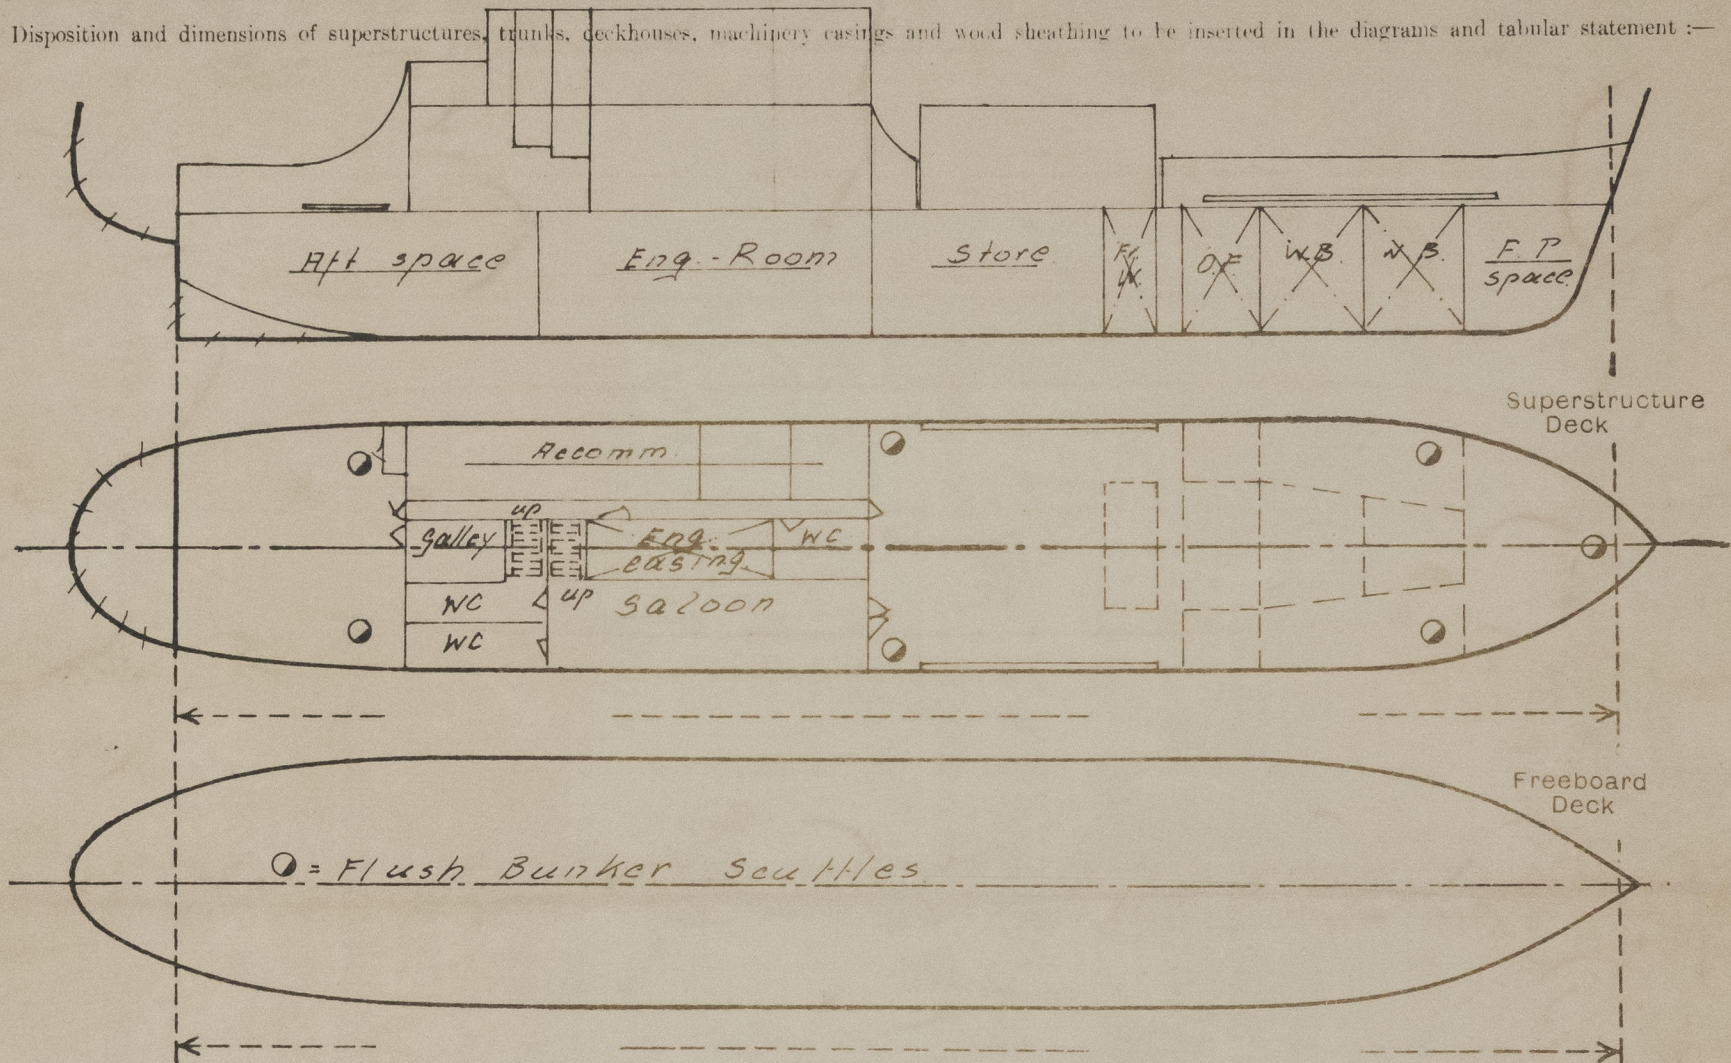 Disposition and dimensions of superstructures, trunks, deckhouses, machinery casings and wood sheathing to be inserted in the diagrams and tabular statement :—
Aft space
Eng.-Room
Store
Fr. W.
O.F.
W.B.
W.B.
F.P.
space
Superstructure
Deck
Accomm.
up
Galley
Eng.
casing
WC
WC
up
Saloon
WC
Freeboard
Deck
= Flush Bunker Scuttles